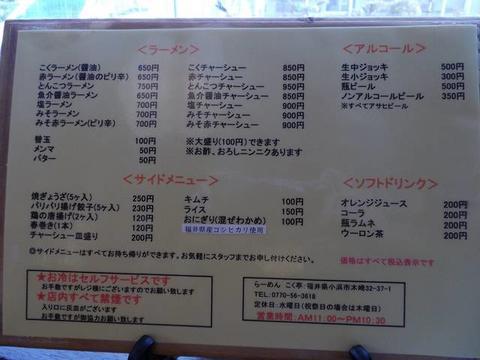 ＜ラーメン＞
こくラーメン(醤油) 650円
赤ラーメン(醤油のピリ辛) 650円
とんこつラーメン 750円
魚介醤油ラーメン 700円
塩ラーメン 700円
みそラーメン 700円
みそ赤ラーメン(ピリ辛) 700円
替玉 100円
メンマ 50円
バター 50円
こくチャーシュー 850円
赤チャーシュー 850円
とんこつチャーシュー 850円
魚介醤油チャーシュー 900円
塩チャーシュー 900円
みそチャーシュー 900円
みそ赤チャーシュー 900円
※大盛り(100円)できます
※お酢、おろしニンニクあります
＜アルコール＞
生中ジョッキ 500円
生小ジョッキ 300円
瓶ビール 500円
ノンアルコールビール 350円
※すべてアサヒビール
＜サイドメニュー＞
焼ぎょうざ(5ヶ入) 250円
パリパリ揚げ餃子(5ヶ入) 230円
鶏の唐揚げ(2ヶ入) 200円
春巻き(1本) 120円
チャーシュー皿盛り 200円
キムチ 100円
ライス 150円
おにぎり(混ぜわかめ) 100円
福井県産コシヒカリ使用
＜ソフトドリンク＞
オレンジジュース 200円
コーラ 200円
瓶ラムネ 200円
ウーロン茶 200円
◎サイドメニューはすべてお持ち帰りができます。お気軽にスタッフまでお申し付けください。
価格はすべて税込表示です
★お冷はセルフサービスです
お手数ですがレジ横にございますのでお願い致します
★店内すべて禁煙です
入り口に灰皿がございます
お手数ですが御協力お願い致します
らーめん こく亭・福井県小浜市木崎32-37-1
TEL:0770-56-3618
定休日:水曜日(祝祭日の場合は木曜日)
営業時間:AM11:00～PM10:30